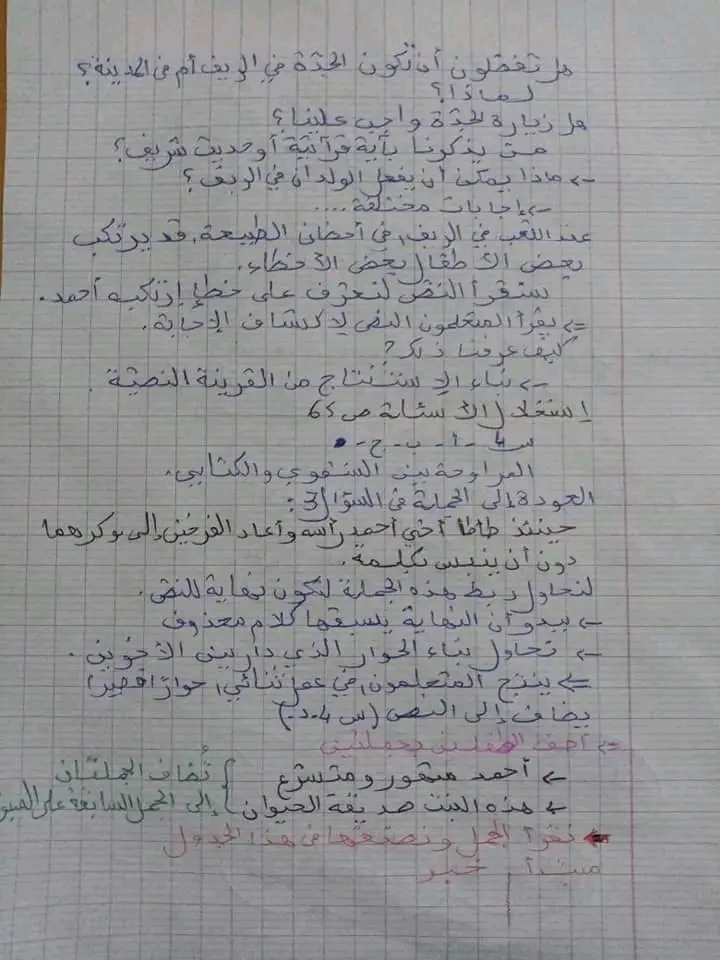 هل تفضلون أن تكون الجدّة في الريف أم في المدينة؟
لماذا؟
هل زيارة الجدّة واجب علينا؟
من يذكرنا بآية قرآنيّة أو حديث شريف؟
-> ماذا يمكن أن يفعل الولدان في الريف؟
-> إجابات مختلفة....
عند اللّعب في الريف، في أحضان الطبيعة، قد يرتكب
بعض الأطفال بعض الأخطاء.
سنقرأ النص لنتعرّف على خطإ ارتكبه أحمد.
=> يقرأ المتعلمون النص لاكتشاف الإجابة.
كيف عرفنا ذلك؟
-> بناء الاستنتاج من القرينة النصيّة.
استغلال الأسئلة ص 65
س 4 - أ - ب - ج -
المراوحة بين الشفوي والكتابي.
العودة إلى الجملة في السؤال 3:
حينئذ طأطأ أخي أحمد رأسه وأعاد الفرخين إلى وكرهما
دون أن ينبس بكلمة.
لنحاول ربط هذه الجملة لتكون نهاية للنص.
-> يبدو أن النهاية يسبقها كلام محذوف
-> نحاول بناء الحوار الذي دار بين الأخوين.
=> ينتج المتعلمون، في عمل ثنائي، حوارا قصيرا
يضاف إلى النص (س 4-د-)
=> أصف الطفلين بجملتين
-> أحمد متهور ومتسرع } تُضاف الجملتان
-> هذه البنت صديقة الحيوان } إلى الجمل السابقة على
-> نقرأ الجمل ونصنفها في هذا الجدول
مبتدأ | خبر